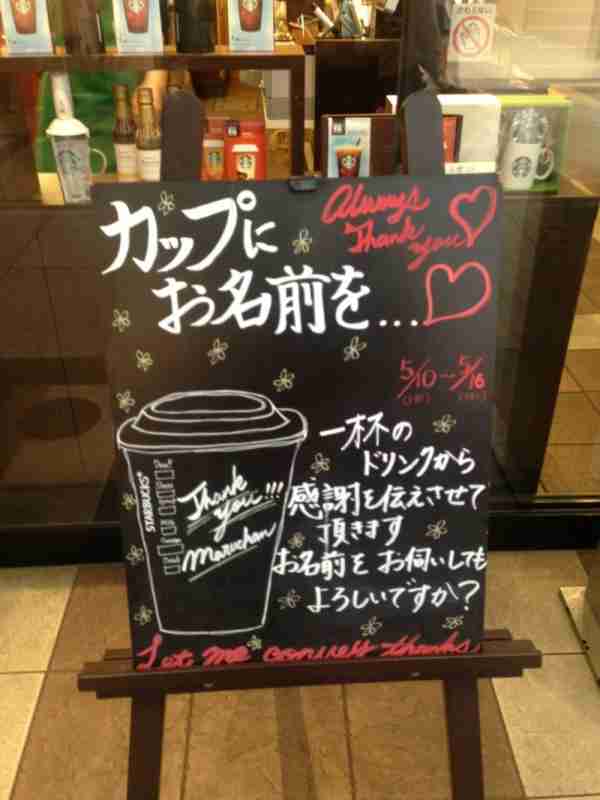 カップに
お名前を...
Always
Thank
you
5/10~5/16
一杯の
ドリンクから
感謝を伝えさせて
頂きます
お名前を お伺いしても
よろしいですか?
STARBUCKS
Thank
you!!!
Maruchan
Let me
thanks